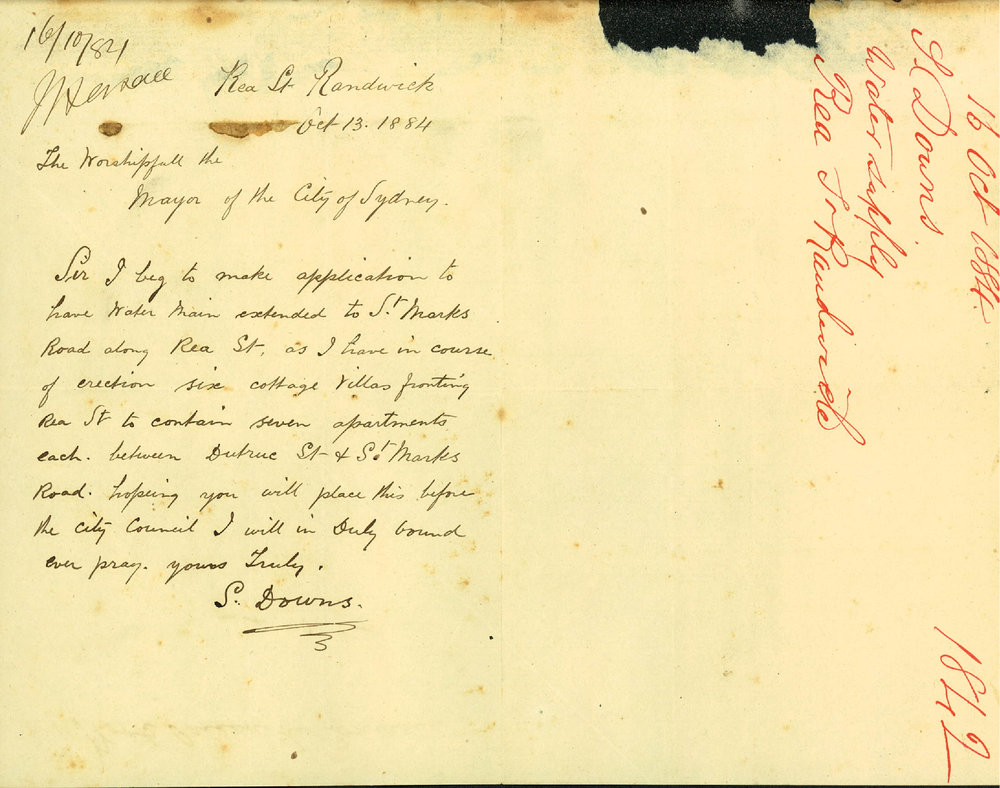 16/10/84
Rea St Randwick
Oct 13. 1884
The Worshipfull the
Mayor of the City of Sydney.
Sir I beg to make application to
have Water Main extended to St Marks
Road along Rea St, as I have in course
of erection six cottage Villas fronting
Rea St to contain seven apartments
each. between Dutruc St & St Marks
Road. hopeing you will place this before
the City Council I will in Duly bound
ever pray. yours Truly.
S. Downs.
16 Oct 1884
Downs
Water Supply
Rea St Randwick